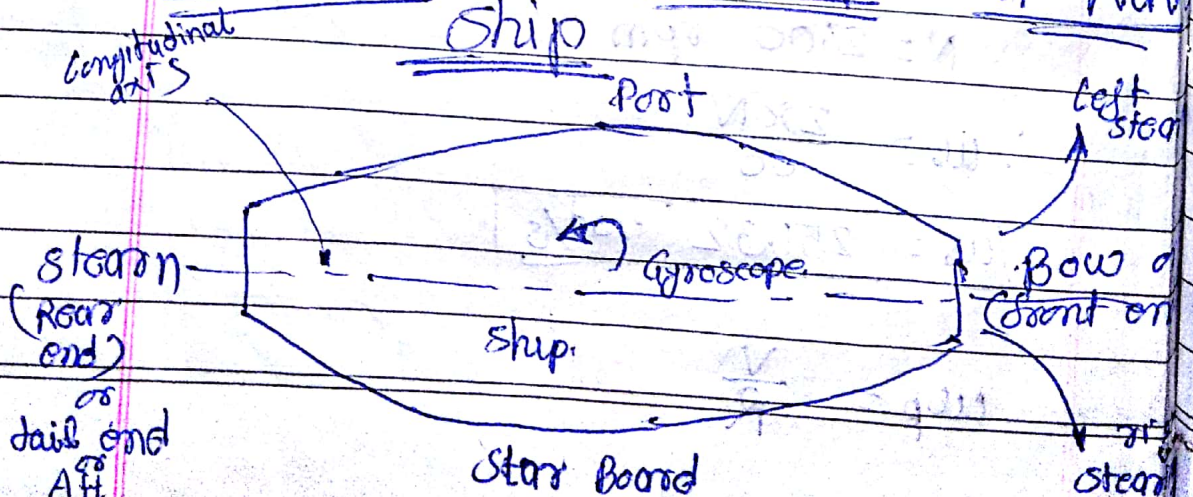 Ship
Longitudinal
axis
Port
Left
stear
stearn
(Rear
end)
or
tail end
or
Aft
Gyroscope
Ship.
Bow o
(front en
Star Board
stear